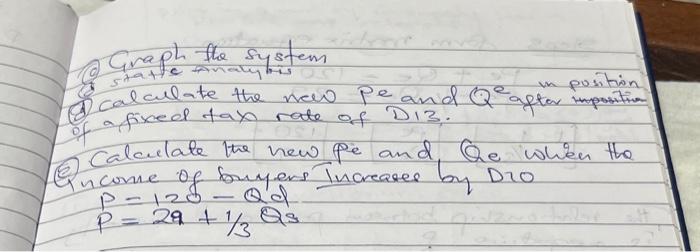 (c) Graph the system
static Analysis
(d) calculate the new Pe and Qe after imposition
of a fixed tax rate of D13.
(e) Calculate the new Pe and Qe when the
income of buyers Increases by D20
P = 120 - Qd
P = 29 + 1/3 Qs